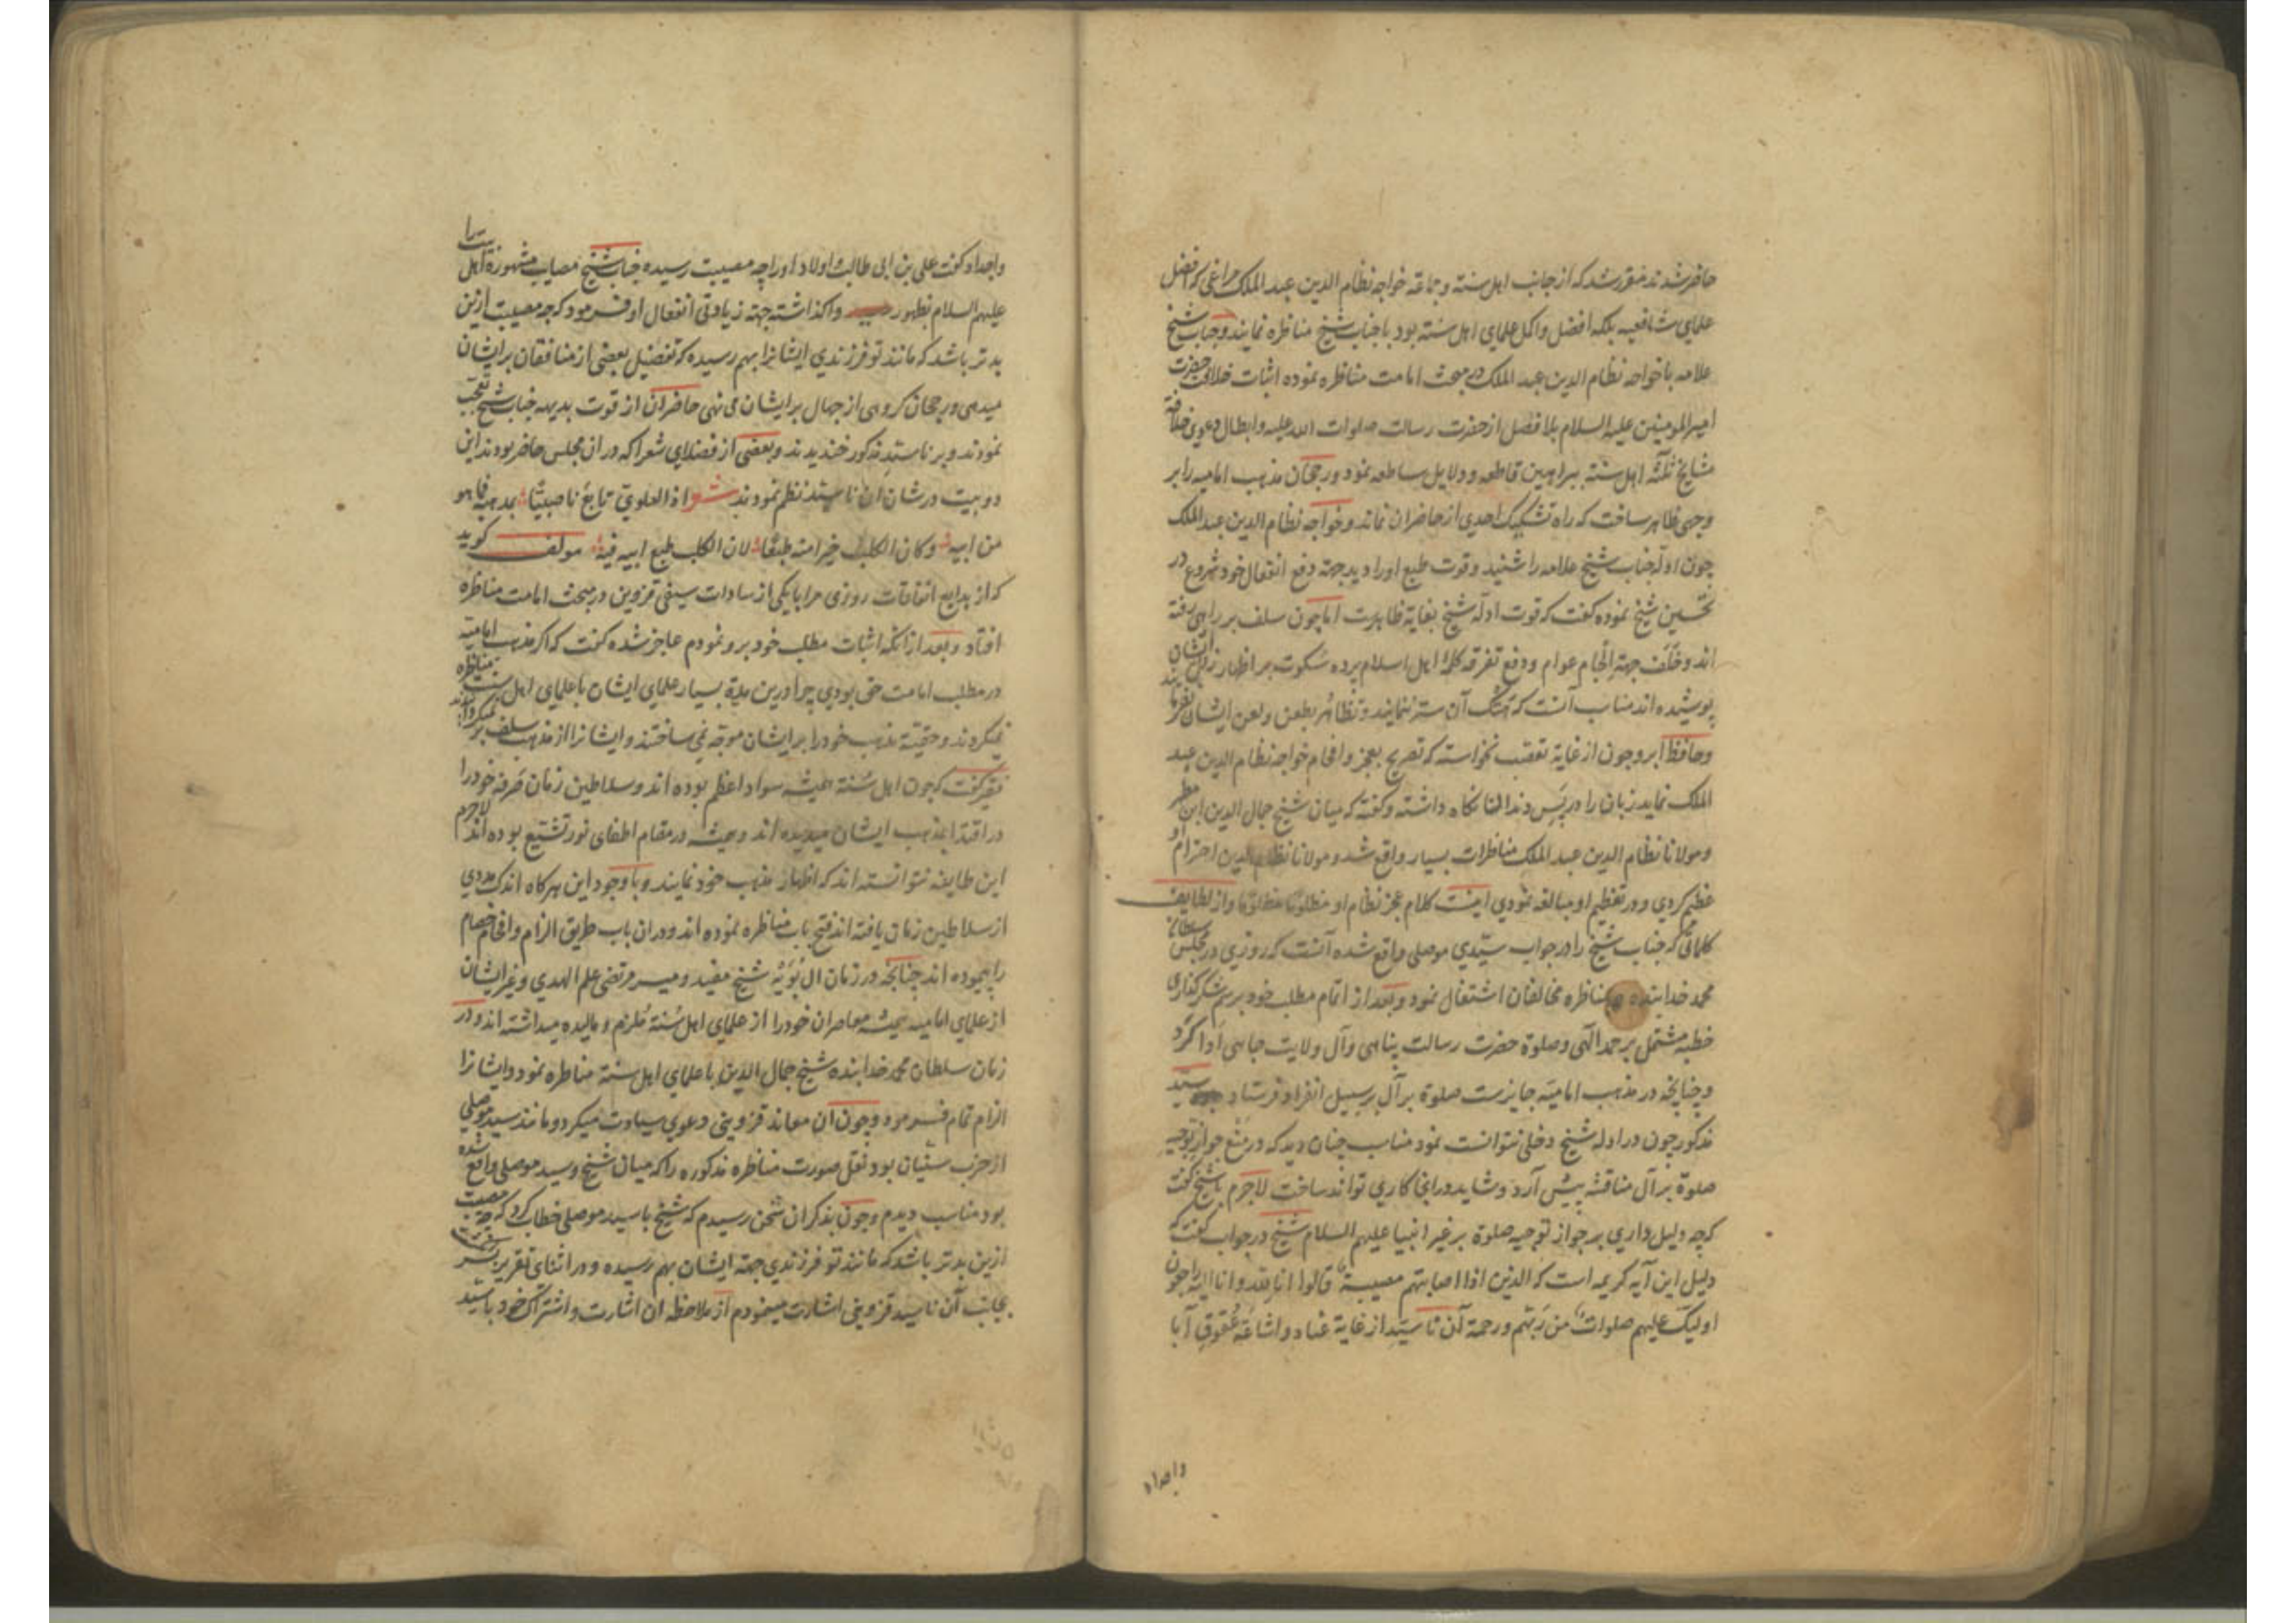 حاضر شدند مقرر شد که از جانب اهل سنة و جماعة خواجه نظام الدین عبد الملک مراغی که افضل
علمای شافعیه بلکه افضل و اکمل علمای اهل سنة بود با جناب شیخ مناظره نمایند و جناب شیخ
علامه با خواجه نظام الدین عبد الملک در مبحث امامت مناظره نموده اثبات خلافت حضرت
امیر المومنین علیه السلام بلا فصل از حضرت رسالت صلوات الله علیه و ابطال دعوی خلافة
مشایخ ثلثه اهل سنة ببراهین قاطعه و دلایل ساطعه نمود و رجحان مذهب امامیه را بر
وجهی ظاهر ساخت که راه تشکیک احدی از حاضران نماند و خواجه نظام الدین عبد الملک
چون ادله جناب شیخ علامه را شنید و قوت طبع او را دید جهة دفع انفعال خود شروع در
تحسین شیخ نموده گفت که قوت ادله شیخ بغایة ظاهرست اما چون سلف بر راهی رفته
اند و خلف جهة الجام عوام و دفع تفرقه کلمه اهل اسلام پرده سکوت بر اظهار زلل ایشان
پوشیده اند مناسب آنست که هتک آن ستر ننمایند و تظاهر بطعن و لعن ایشان نفرمایند
و حافظ ابرو چون از غایة تعصب نخواسته که تصریح بعجز و افحام خواجه نظام الدین عبد
الملک نماید زبان را در پس دندانها نگاه داشته و گفته که میان شیخ جمال الدین ابن مطهر
و مولانا نظام الدین عبد الملک مناظرات بسیار واقع شد و مولانا نظام الدین احترام او
عظیم کردی و در تعظیم او مبالغه نمودی اینست کلام عجز نظام او و از لطایف
کلماتی که جناب شیخ را در جواب سیدی موصلی واقع شده آنست که روزی در مجلس سلطان
محمد خدابنده مناظره مخالفان اشتغال نمود و بعد از اتمام مطلب خود برسم شکر گذاری
خطبه مشتمل بر حمد الهی و صلوة حضرت رسالت پناهی و آل ولایت جاهی ادا کرد
و چنانچه در مذهب امامیه جایزست صلوة بر آل بر سبیل انفراد فرستاد سید
مذکور چون در ادله شیخ دخلی نتوانست نمود مناسب چنان دید که در منع جواز توجیه
صلوة بر آل مناقشه پیش آرد و شاید در انجا کاری تواند ساخت لاجرم با شیخ گفت
که چه دلیل داری بر جواز توجیه صلوة بر غیر انبیا علیهم السلام شیخ در جواب گفت که
دلیل این آیه کریمه است که الذین اذا اصابتهم مصیبة قالوا انا لله و انا الیه راجعون
اولیک علیهم صلوات من ربهم و رحمة آن ناسید از غایة عناد و اشاعة عقوق آبا
و اجداد
و اجداد گفت علی بن ابی طالب و اولاد او را چه مصیبت رسیده جناب شیخ مصایب مشهوره اهل بیت را
علیهم السلام بظهور واگذاشته جهة زیادتی انفعال او فرمود که چه مصیبت ازین
بدتر باشد که مانند تو فرزندی ایشانرا بهم رسیده که تفضیل بعضی از منافقان بر ایشان
میدهی و رجحان گروهی از جهال بر ایشان می نهی حاضران از قوت بدیهه جناب شیخ تعجب
نمودند و بر ناسید مذکور خندیدند و بعضی از فضلای شعرا که در ان مجلس حاضر بودند این
دو بیت در شان ان ناسید نظم نمودند شعر اذا العلوی تابع ناصبیا بمذهبه فما هو
من ابیه و کان الکلب خیرا منه طبعا لان الکلب طبع ابیه فیه مولف گوید
که از بدایع اتفاقات روزی مرا با یکی از سادات سیفی قزوین در مبحث امامت مناظره
افتاد و بعد از انکه اثبات مطلب خود برو نمودم عاجز شده گفت که اگر مذهب امامیه
در مطلب امامت حق بودی چرا درین مدة بسیار علمای ایشان با علمای اهل سنت مناظره
نمیکردند و حقیة مذهب خود را بر ایشان موجه نمی ساختند و ایشانرا از مذهب سلف بر نمیگردانیدند
فقیر گفت که چون اهل سنة همیشه سواد اعظم بوده اند و سلاطین زمان صرفه خود را
در اقتدا بمذهب ایشان میدیده اند و همیشه در مقام اطفای نور تشیع بوده اند لاجرم
این طایفه نتوانسته اند که اظهار مذهب خود نمایند و با وجود این هرگاه اندک مددی
از سلاطین زمان یافته اند فتح باب مناظره نموده اند و دران باب طریق الزام و افحام خصام
را پیموده اند چنانچه در زمان ال بویه شیخ مفید و میر مرتضی علم الهدی و غیر ایشان
از علمای امامیه همیشه معاصران خود را از علمای اهل سنة ملزم و مالیده میداشته اند و در
زمان سلطان محمد خدابنده شیخ جمال الدین با علمای اهل سنة مناظره نمود و ایشانرا
الزام تمام فرمود و چون ان معاند قزوینی دعوی سیادت میکرد و مانند سید موصلی
از حزب سنیان بود نقل صورت مناظره مذکوره را که میان شیخ و سید موصلی واقع شده
بود مناسب دیدم و چون بذکر ان سخن رسیدم که شیخ با سید موصلی خطاب کرد که چه مصیبت
ازین بدتر باشد که مانند تو فرزندی جهة ایشان بهم رسیده و در اثنای تقریر
بجانب آن ناسید قزوینی اشارت مینمودم از ملاحظه ان اشارت و اشتراک خود با سید